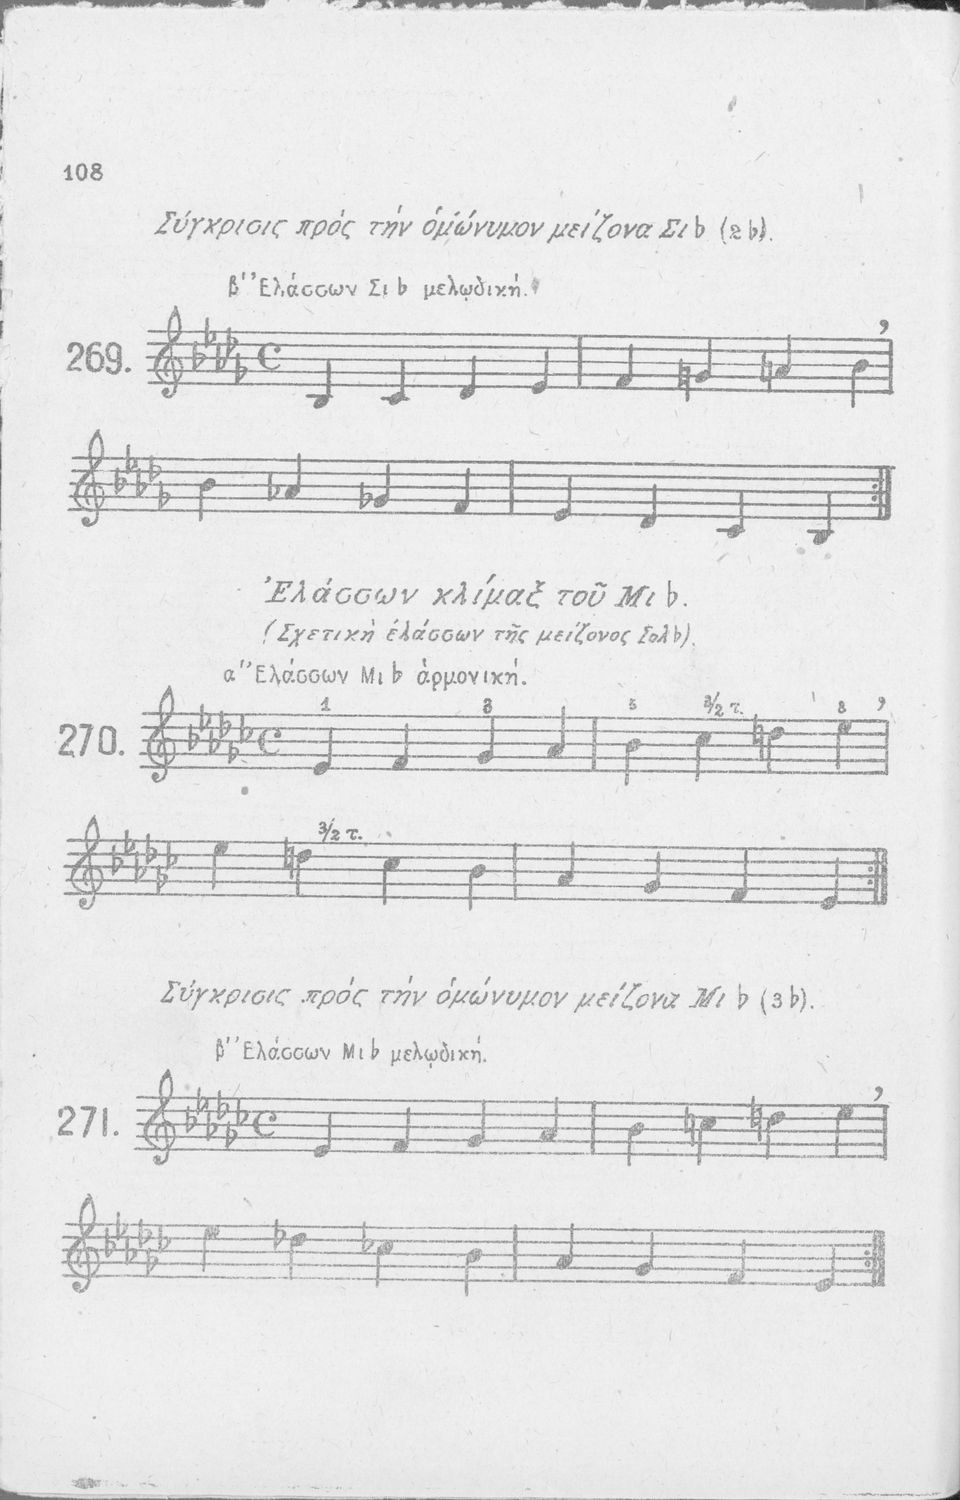 108
Σύγκρισις πρός τήν ὁμώνυμον μείζονα Σι♭ (2♭).
β΄ Ἐλάσσων Σι♭ μελῳδική.
269.
Ἐλάσσων κλίμαξ τοῦ Μι♭.
(Σχετική ἐλάσσων τῆς μείζονος Σολ♭).
α΄ Ἐλάσσων Μι♭ ἁρμονική.
1 3 5 3/2 τ. 8
270.
3/2 τ.
Σύγκρισις πρός τήν ὁμώνυμον μείζονα Μι♭ (3♭).
β΄ Ἐλάσσων Μι♭ μελῳδική.
271.